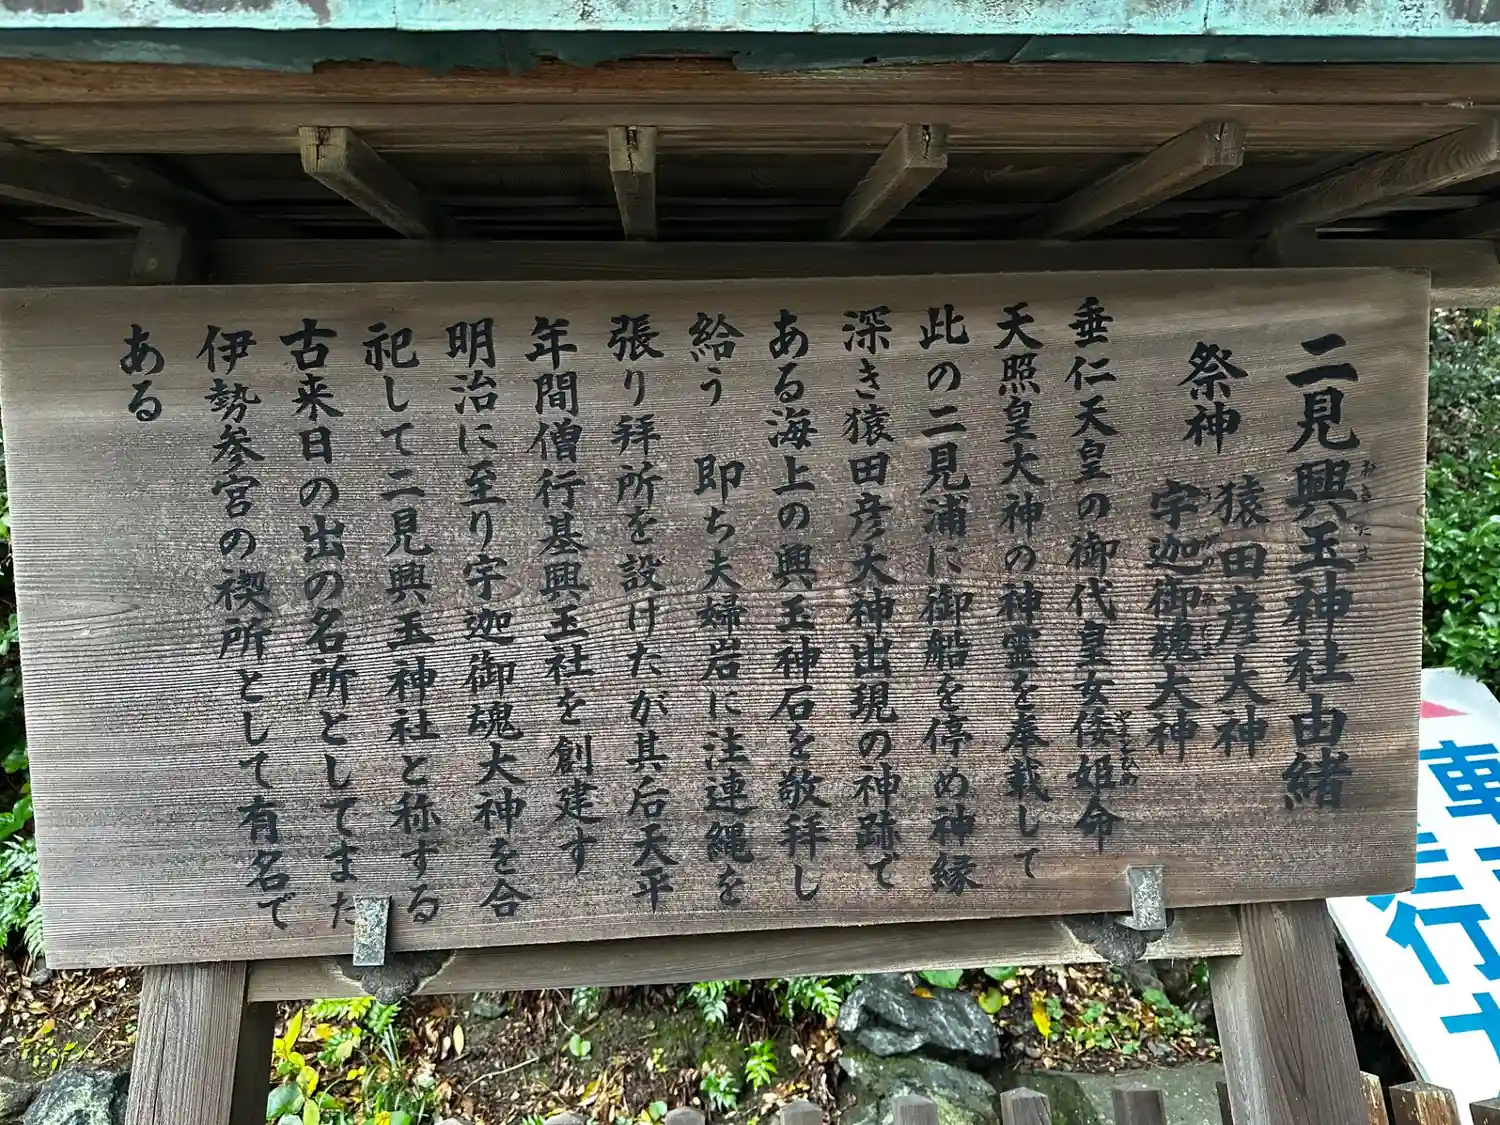 二見興玉神社由緒
おきたま
祭神
猿田彦大神
宇迦御魂大神
うがのみたま
垂仁天皇の御代皇女倭姫命
やまとひめ
天照皇大神の神霊を奉載して
此の二見浦に御船を停め神縁
深き猿田彦大神出現の神跡で
ある海上の興玉神石を敬拝し
給う 即ち夫婦岩に注連縄を
張り拝所を設けたが其后天平
年間僧行基興玉社を創建す
明治に至り宇迦御魂大神を合
祀して二見興玉神社と称する
古来日の出の名所としてまた
伊勢参宮の禊所として有名で
ある